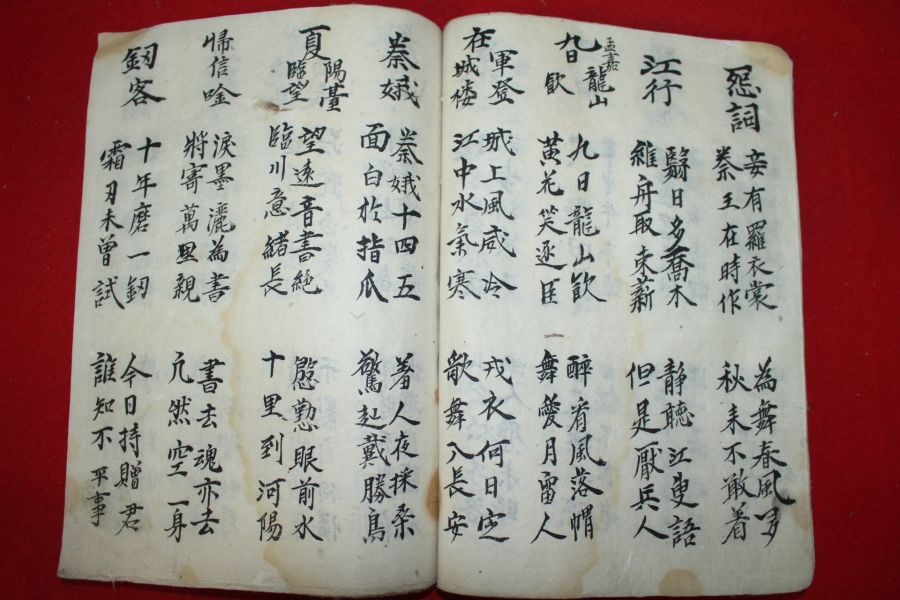 怨詞
妾有羅衣裳
秦王在時作
為舞春風多
秋来不敢着
江行
翳日多喬木
維舟取束薪
靜聽江叟語
但是厭兵人
九日
孟嘉
龍山
飲
九日龍山飲
黃花笑逐臣
醉看風落帽
舞愛月畱人
軍登
在城樓
城上風威冷
江中水氣寒
戎衣何日定
歌舞入長安
秦娥
秦娥十四五
面白於指爪
羞人夜採桑
驚起戴勝鳥
夏
陽臺
臨望
望遠音書絶
臨川意緒長
慇懃眼前水
十里到河陽
帰信唫
淚墨灑為書
將寄萬里親
書去魂亦去
兀然空一身
釰客
十年磨一釰
霜刃未曾試
今日持贈君
誰知不平事